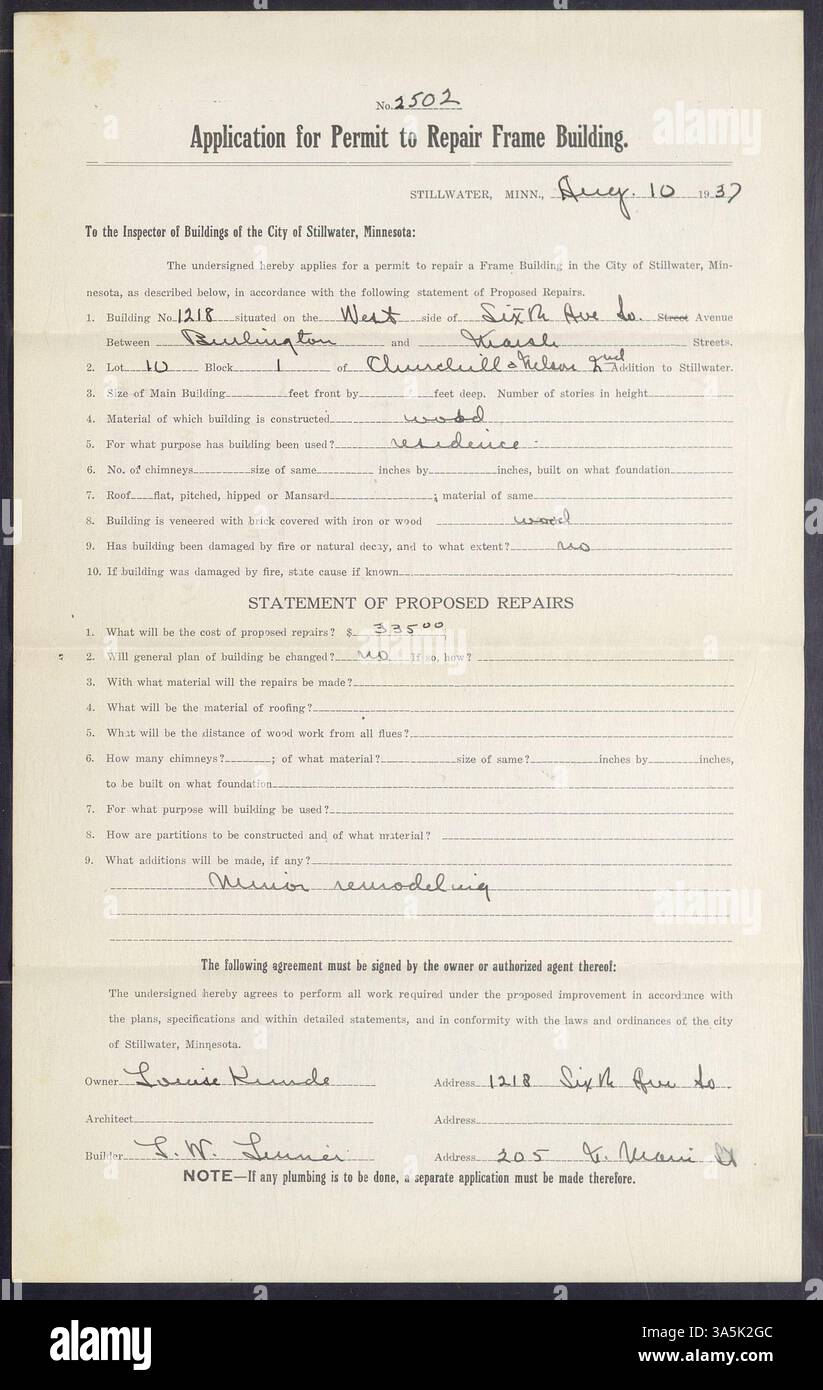 No. 2502
Application for Permit to Repair Frame Building.
STILLWATER, MINN., Aug. 10 1937
To the Inspector of Buildings of the City of Stillwater, Minnesota:
The undersigned hereby applies for a permit to repair a Frame Building in the City of Stillwater, Min-
nesota, as described below, in accordance with the following statement of Proposed Repairs.
1. Building No. 1218 situated on the West side of Sixth Ave So. Street Avenue
Between Burlington and Marsh Streets.
2. Lot 10 Block 1 of Churchill & Nelson 2nd Addition to Stillwater.
3. Size of Main Building feet front by feet deep. Number of stories in height
4. Material of which building is constructed wood
5. For what purpose has building been used? residence
6. No. of chimneys size of same inches by inches, built on what foundation
7. Roof flat, pitched, hipped or Mansard ; material of same
8. Building is veneered with brick covered with iron or wood wood
9. Has building been damaged by fire or natural decay, and to what extent? no
10. If building was damaged by fire, state cause if known
STATEMENT OF PROPOSED REPAIRS
1. What will be the cost of proposed repairs? $ 335 00
2. Will general plan of building be changed? no If so, how?
3. With what material will the repairs be made?
4. What will be the material of roofing?
5. What will be the distance of wood work from all flues?
6. How many chimneys? ; of what material? size of same? inches by inches,
to be built on what foundation
7. For what purpose will building be used?
8. How are partitions to be constructed and of what material?
9. What additions will be made, if any?
Minor remodeling
The following agreement must be signed by the owner or authorized agent thereof:
The undersigned hereby agrees to perform all work required under the proposed improvement in accordance with
the plans, specifications and within detailed statements, and in conformity with the laws and ordinances of the city
of Stillwater, Minnesota.
Owner Louise Kunde Address 1218 Sixth Ave So.
Architect Address
Builder L. W. Address 205 Main St
NOTE—If any plumbing is to be done, a separate application must be made therefore.
alamy
Image ID: 3A5K2GC
www.alamy.com